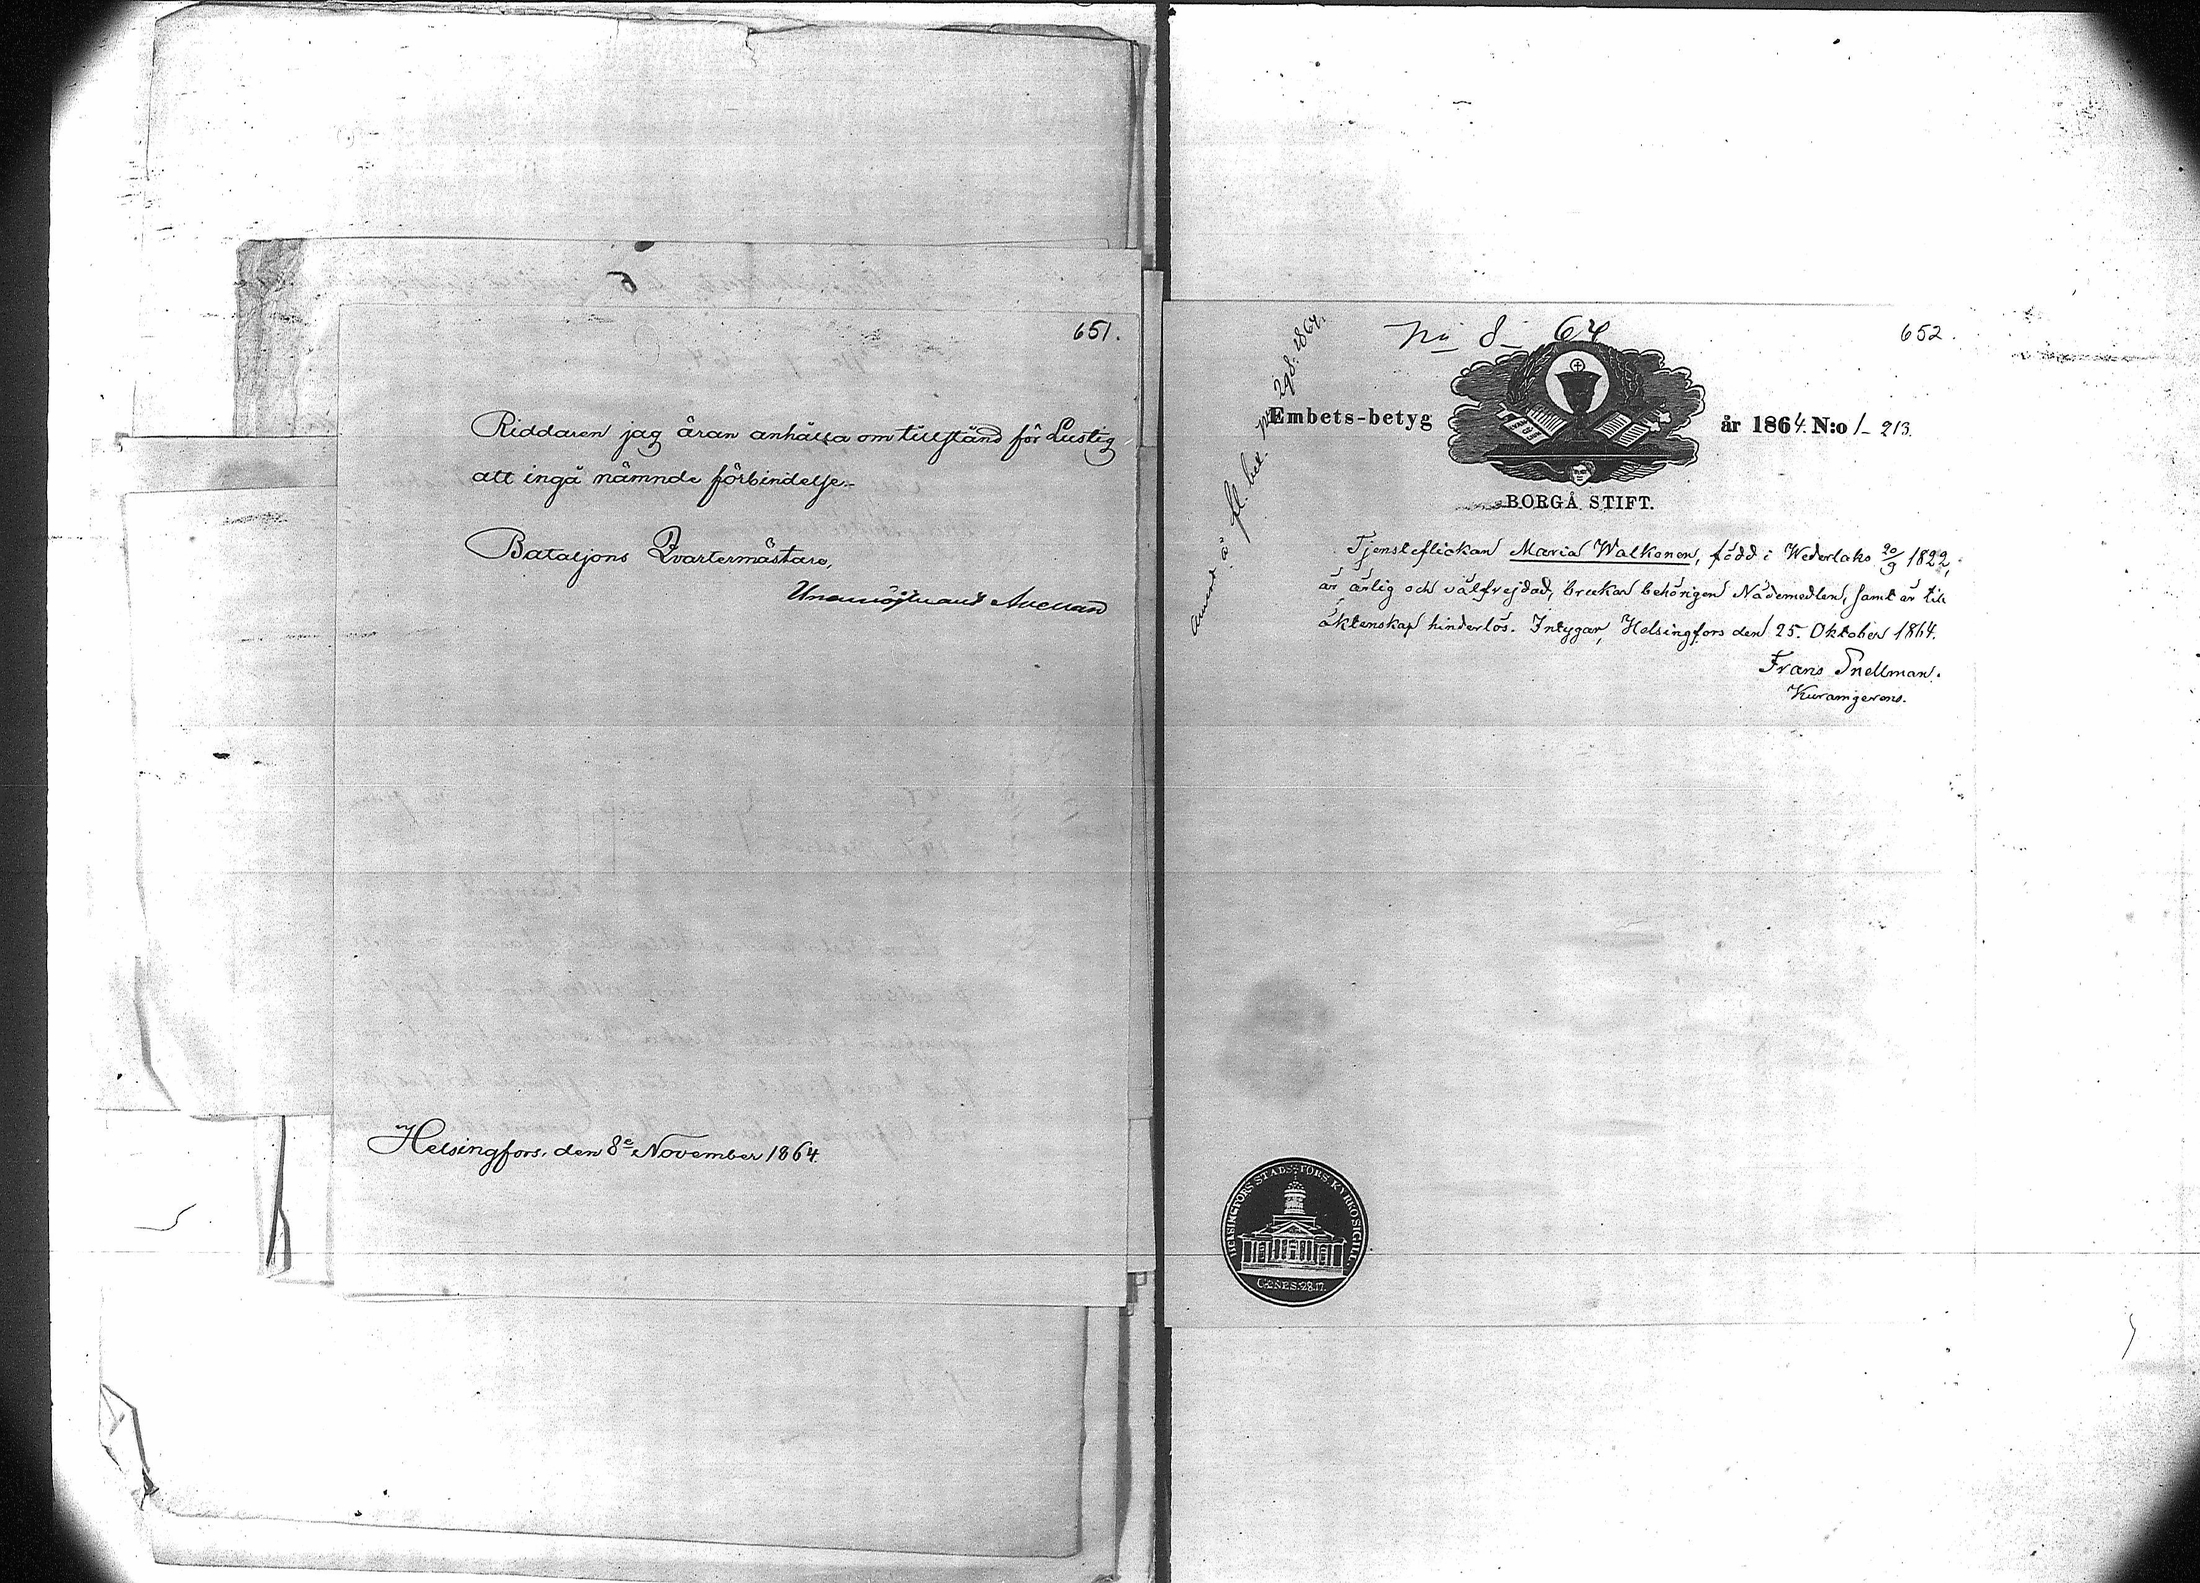 651.
Riddaren jag äran anhålla om tillstånd för Lustig
att ingå nämnde förbindelse.
Bataljons Qvartermästare,
Helsingfors, den 8e November 1864.
652.
No 8 64
Embets-betyg år 1864. N:o 1_ 213.
BORGÅ STIFT.
Tjensteflickan Maria Walkonen, född i Wederlaks 20/9 1822,
är ärlig och välfrejdad, brukar behörigen Nådemedlen, samt är till
äktenskap hinderlös. Intygar, Helsingfors den 25. Oktober 1864.
Frans Snellman.
HELSINGFORS STADS FÖRS. KYRKOSIGILL.
GENES. 28.17.